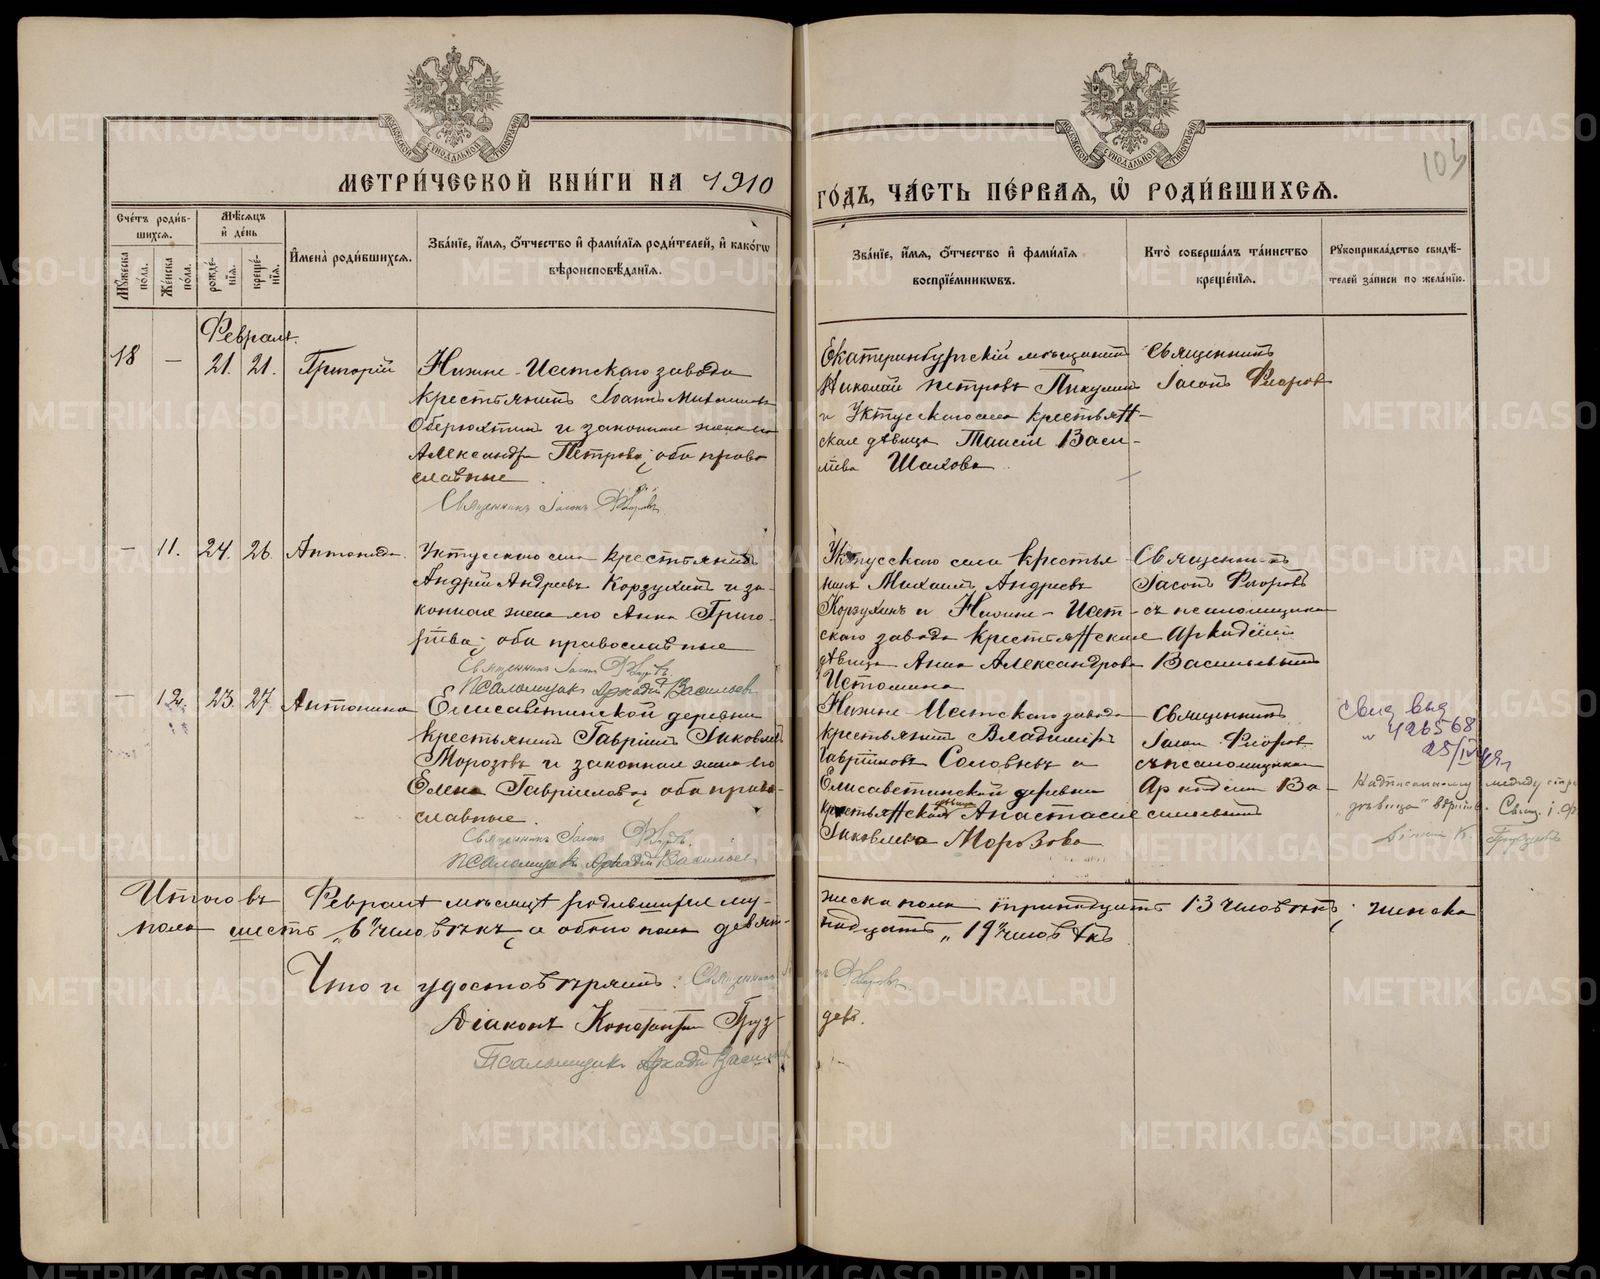 МЕТРИ́ЧЕСКОЙ КНИ́ГИ НА 1910
ГО́ДЪ, ЧА́СТЬ ПЕ́РВАЯ, Ѡ РОДИ́ВШИХСЯ.
103
Сче́тъ роди́в-
шихся.
Мѣ́сяцъ
и́ де́нь
Му́жеска по́ла.
Же́нска по́ла.
рожде́-
нїя.
креще́-
нїя.
И҆мена̀ роди́вшихся.
Зва́нїе, и҆́мя, ѻ҆́тчество и҆ фами́лїя роди́телей, и҆ како́гѡ
вѣроисповѣ́данїя.
Зва́нїе, и҆́мя, ѻ҆́тчество и҆ фами́лїя
воспрїе́мникѡвъ.
Кто̀ соверша́лъ та́инство
креще́нїя.
Рукоприкла́дство свидѣ́-
телей за́писи по жела́нїю.
Февраль.
18 — 21. 21. Григорій
Нижне-Исетскаго завода
крестьянинъ Іоаннъ
Оберюхтинъ и законная жена его
Александра Петрова; оба право-
славные.
Священникъ Іасонъ Флоровъ
Екатеринбургскій мѣщанинъ
Николай Петровъ Пикулинъ
и Уктусскаго села крестьян-
ская дѣвица Таисія Васи-
льева
Священникъ
Іасонъ Флоровъ
— 11. 24. 26. Антонида
Уктусскаго села крестьянинъ
Андрей Андреевъ Корзухинъ и за-
конная жена его Анна Григо-
рьева; оба православные
Священникъ Іасонъ Флоровъ.
Псаломщикъ Аркадій Васильевъ
Уктусскаго села крестья-
нинъ Михаилъ Андреевъ
Корзухинъ и Нижне-Исет-
скаго завода крестьянская
дѣвица Анна Александрова
Истомина
Священникъ
Іасонъ Флоровъ
съ псаломщикомъ
Аркадіемъ
Васильевымъ
— 12. 23. 27. Антонина
Елисаветинской деревни
крестьянинъ Гавріилъ Іаковлевъ
Морозовъ и законная жена его
Елена Гавріилова; оба право-
славные.
Священникъ Іасонъ Флоровъ.
Псаломщикъ Аркадій Васильевъ
Нижне-Исетскаго завода
крестьянинъ Владиміръ
Гавріиловъ Соловьевъ и
Елисаветинской деревни
крестьянская дѣвица Анастасія
Іаковлева Морозова
Священникъ
Іасонъ Флоровъ
съ псаломщикомъ
Аркадіемъ Ва-
сильевымъ
Свид выд
№ 426568
25/IV
Надписанному между строк
„дѣвица“ вѣрить. Свящ. І. Ф
Діаконъ К. Груздевъ
Итого въ Февралѣ мѣсяцѣ родившихся му-
жеска пола тринадцать 13 человѣкъ; женска
пола шесть „6“ человѣкъ, а обоего пола девят-
надцать „19“ человѣкъ
Что и удостовѣряютъ: Священникъ Іасонъ Флоровъ.
Діаконъ Константинъ Груздевъ.
Псаломщикъ Аркадій Васильевъ